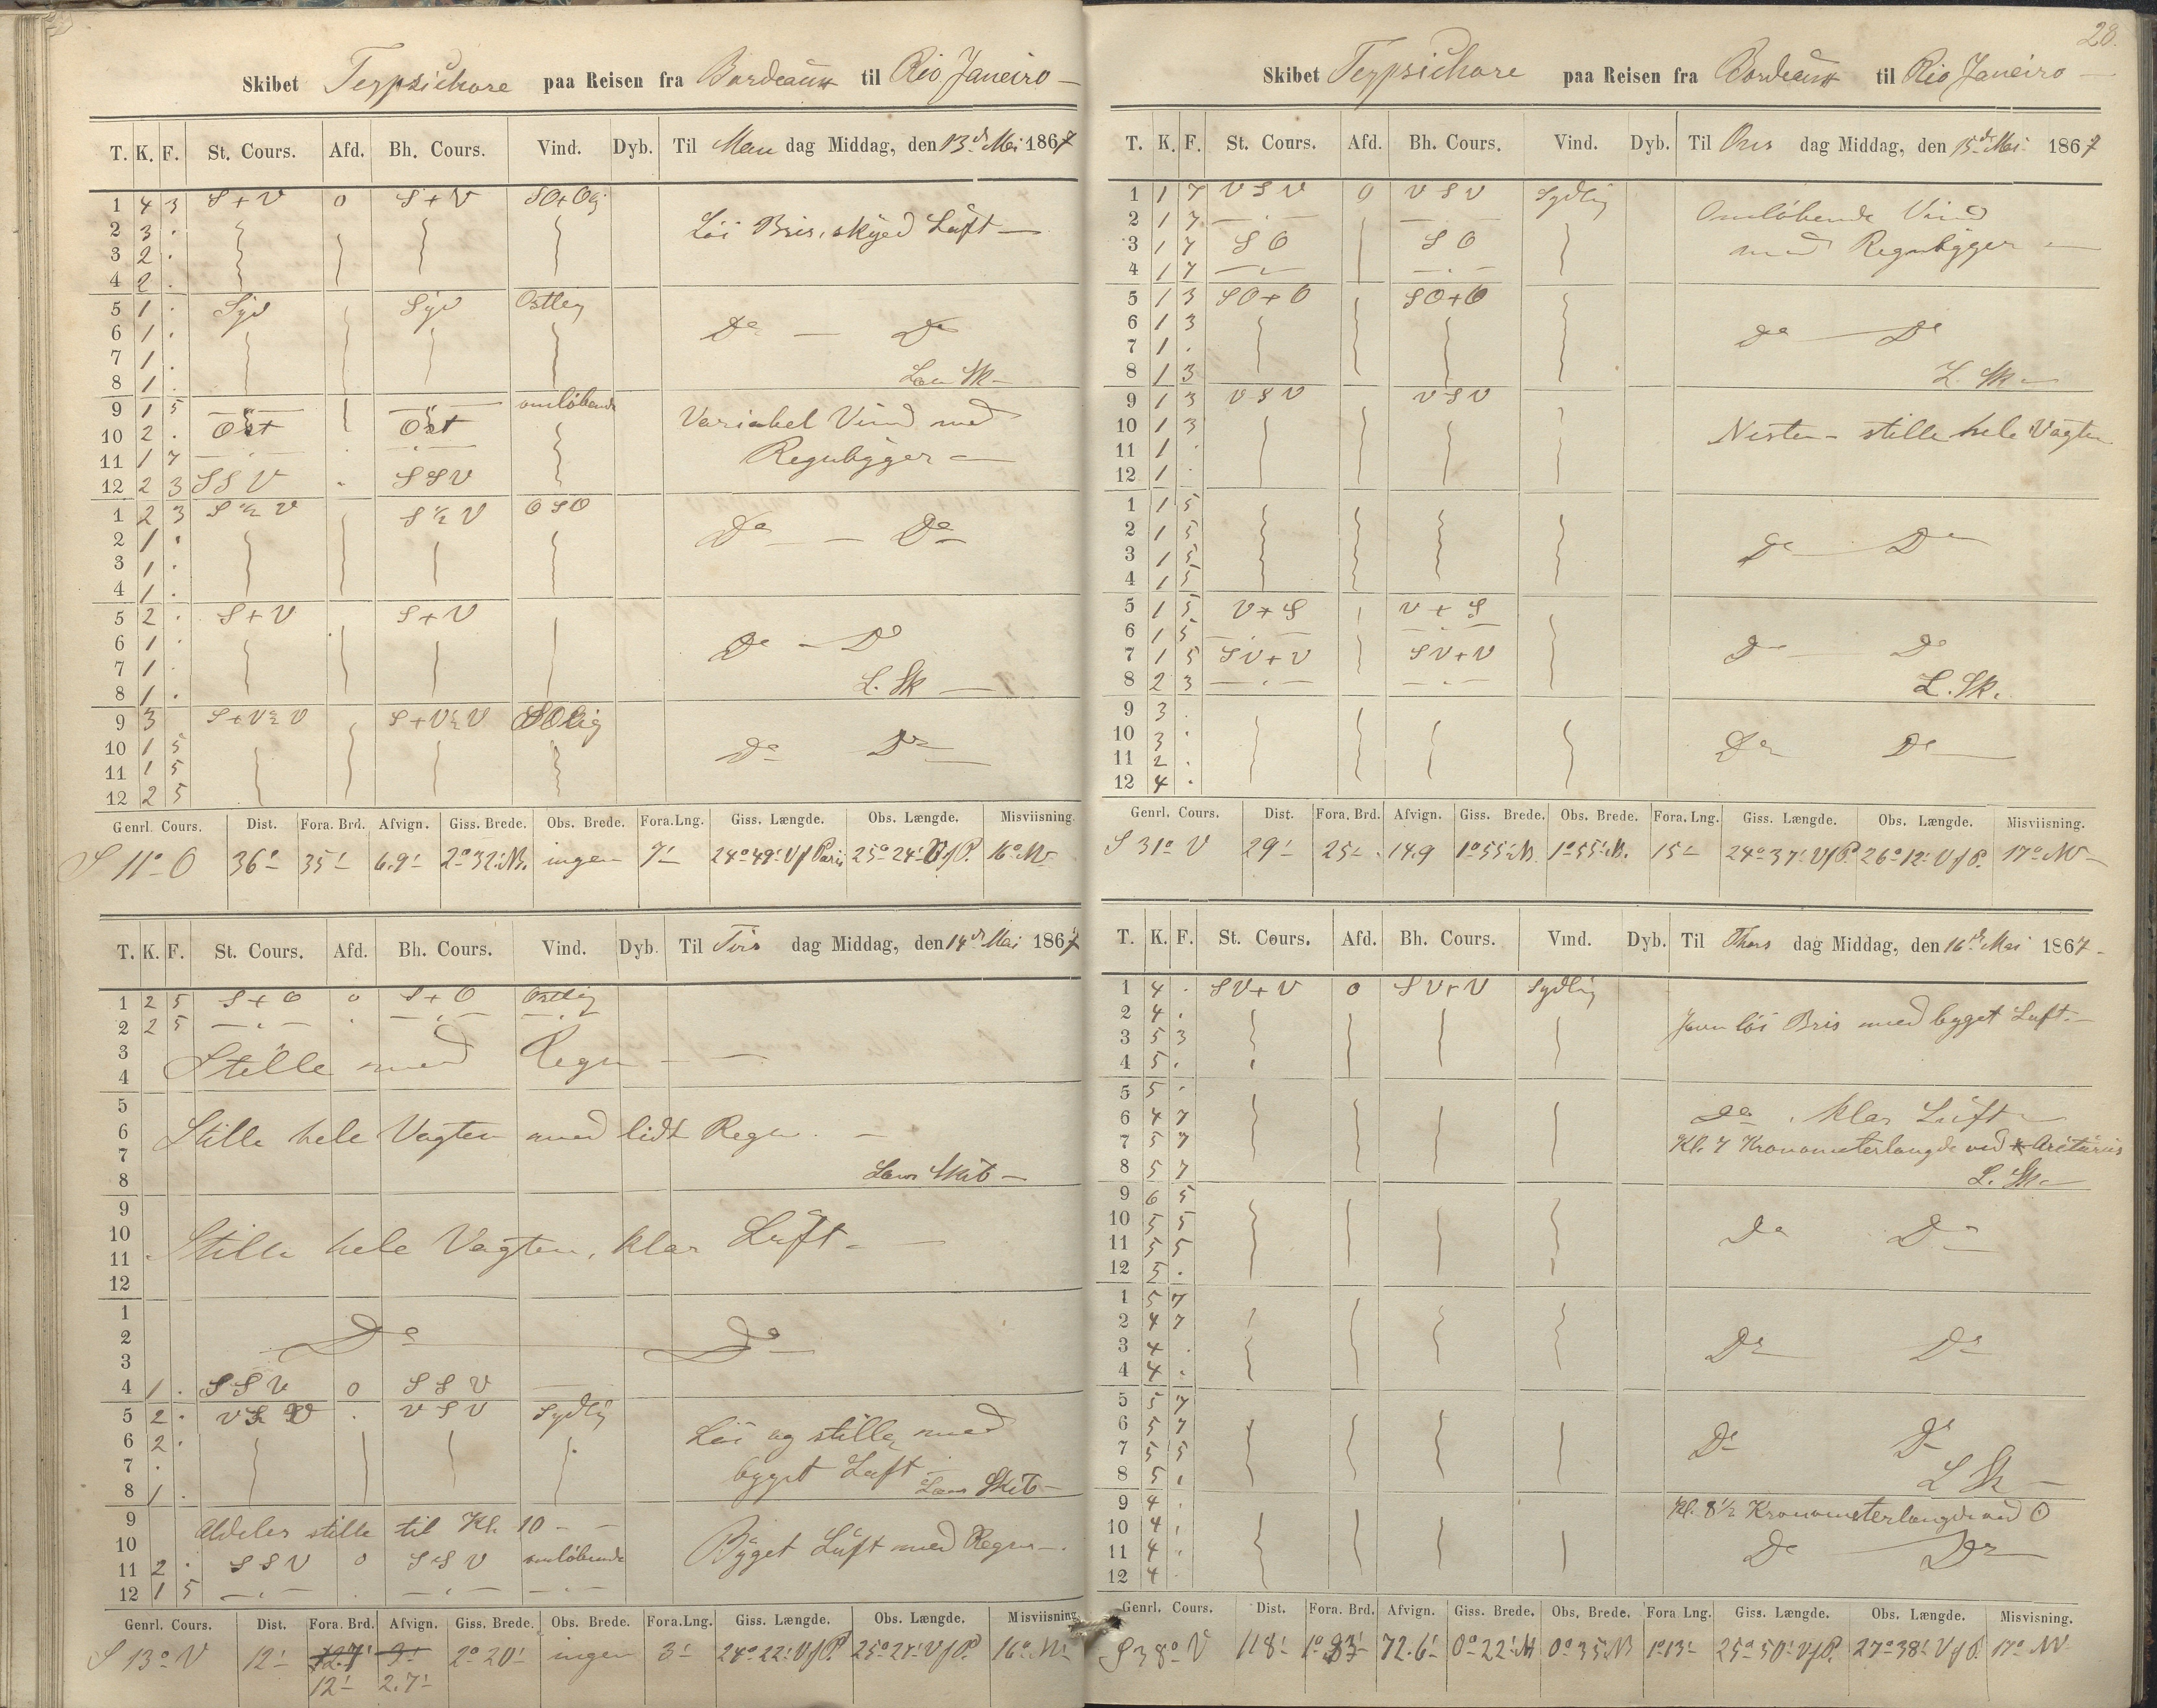 28.
Skibet Terpsichore paa Reisen fra Bordeaux til Rio Janeiro
T. K. F. St. Cours. Afd. Bh. Cours. Vind. Dyb. Til Man dag Middag, den 13d Mai 1867
1 4 3 S + V 0 S + V SO+O
2 3 . Löi Bris, skyed Luft
3 2 .
4 2 .
5 1 . Syd Syd Ostlig
6 1 . Do — Do
7 1 .
8 1 . Lars Sk
9 1 5 omløbende
10 2 . Ost Ost Variabel Vind med
11 1 7 Regnbyger
12 2 3 SSV SSV
1 2 3 S ½ V S ½ V OSO
2 1 . Do — Do
3 1 .
4 1 .
5 2 . S + V S + V
6 1 . Do — Do
7 1 .
8 1 . L. Sk
9 3 S+V½V S+V½V SOlig
10 1 5 Do Do
11 1 5
12 2 5
Genrl. Cours. Dist. Fora. Brd. Afvign. Giss. Brede. Obs. Brede. Fora.Lng. Giss. Længde. Obs. Længde. Misviisning.
S 11° O 36' 35' 6.9' 2°32' N. ingen 7' 24°49' V f Paris 25°24' V f P. 16° NV
T. K. F. St. Cours. Afd. Bh. Cours. Vind. Dyb. Til Tirs dag Middag, den 14d Mai 1867
1 2 5 S + O 0 S + O Ostlig
2 2 5
3
4 Stille med Regn
5
6 Stille hele Vagten med lidt Regn.
7
8 Lars Skib
9
10 Stille hele Vagten, klar Luft
11
12
1
2 Do Do
3
4 1 . SSV 0 SSV
5 2 . VSV . VSV Sydlig
6 2 . Löi og stille med
7 . byget Luft
8 1 . Lars Skib
9 Aldeles stille til Kl. 10
10 Byget Luft med Regn
11 2 . SSV 0 SSV omløbende
12 1 5
Genrl. Cours. Dist. Fora. Brd. Afvign. Giss. Brede. Obs. Brede. Fora.Lng. Giss. Længde. Obs. Længde. Misviisning
S 13° V 12' 12' 2.7' 2°20' ingen 3' 24°22' V f P. 25°21' V f P. 16° NV
Skibet Terpsichore paa Reisen fra Bordeaux til Rio Janeiro
T. K. F. St. Cours. Afd. Bh. Cours. Vind. Dyb. Til Ons dag Middag, den 15d Mai 1867
1 1 7 VSV 0 VSV Sydlig
2 1 7 Omløbende Vind
3 1 7 SO SO med Regnbyger
4 1 7
5 1 3 SO+O SO+O
6 1 3 Do Do
7 1 .
8 1 3 L. Sk
9 1 3 VSV VSV
10 1 3 Nesten stille hele Vagten
11 1 .
12 1 .
1 1 5
2 1 5 Do Do
3 1 5
4 1 5
5 1 5 V + S V + S
6 1 5 Do Do
7 1 5 SV+V SV+V
8 2 3 L. Sk.
9 3 .
10 3 . Do Do
11 2 .
12 4 .
Genrl. Cours. Dist. Fora. Brd. Afvign. Giss. Brede. Obs. Brede. Fora. Lng. Giss. Længde. Obs. Længde. Misviisning.
S 31° V 29' 25' 14.9 1°55' N. 1°55' N. 15' 24°37' V f P. 26°12' V f P. 17° NV
T. K. F. St. Cours. Afd. Bh. Cours. Vind. Dyb. Til Thors dag Middag, den 16d Mai 1867
1 4 . SV+V 0 SV+V Sydlig
2 4 . Jevn löi Bris med byget Luft
3 5 3
4 5 .
5 5 .
6 4 7 Do . klar Luft
7 5 7 Kl. 7 Kronometerlængde ved * Arcturus
8 5 7 L. Sk
9 6 5
10 5 5 Do Do
11 5 5
12 5 .
1 5 7
2 4 7
3 4 . Do Do
4 4 .
5 5 7
6 5 7
7 5 5 Do Do
8 5 . L Sk
9 4 . Kl. 8½ Kronometerlængde ved ☉
10 4 .
11 4 . Do Do
12 4 .
Genrl. Cours. Dist. Fora. Brd. Afvign. Giss. Brede. Obs. Brede. Fora Lng. Giss. Længde. Obs. Længde. Misvisning.
S 38° V 118' 72.6' 0°22' N 0°35' N 1°13' 25°50' V f P. 27°38' V f P. 17° NV